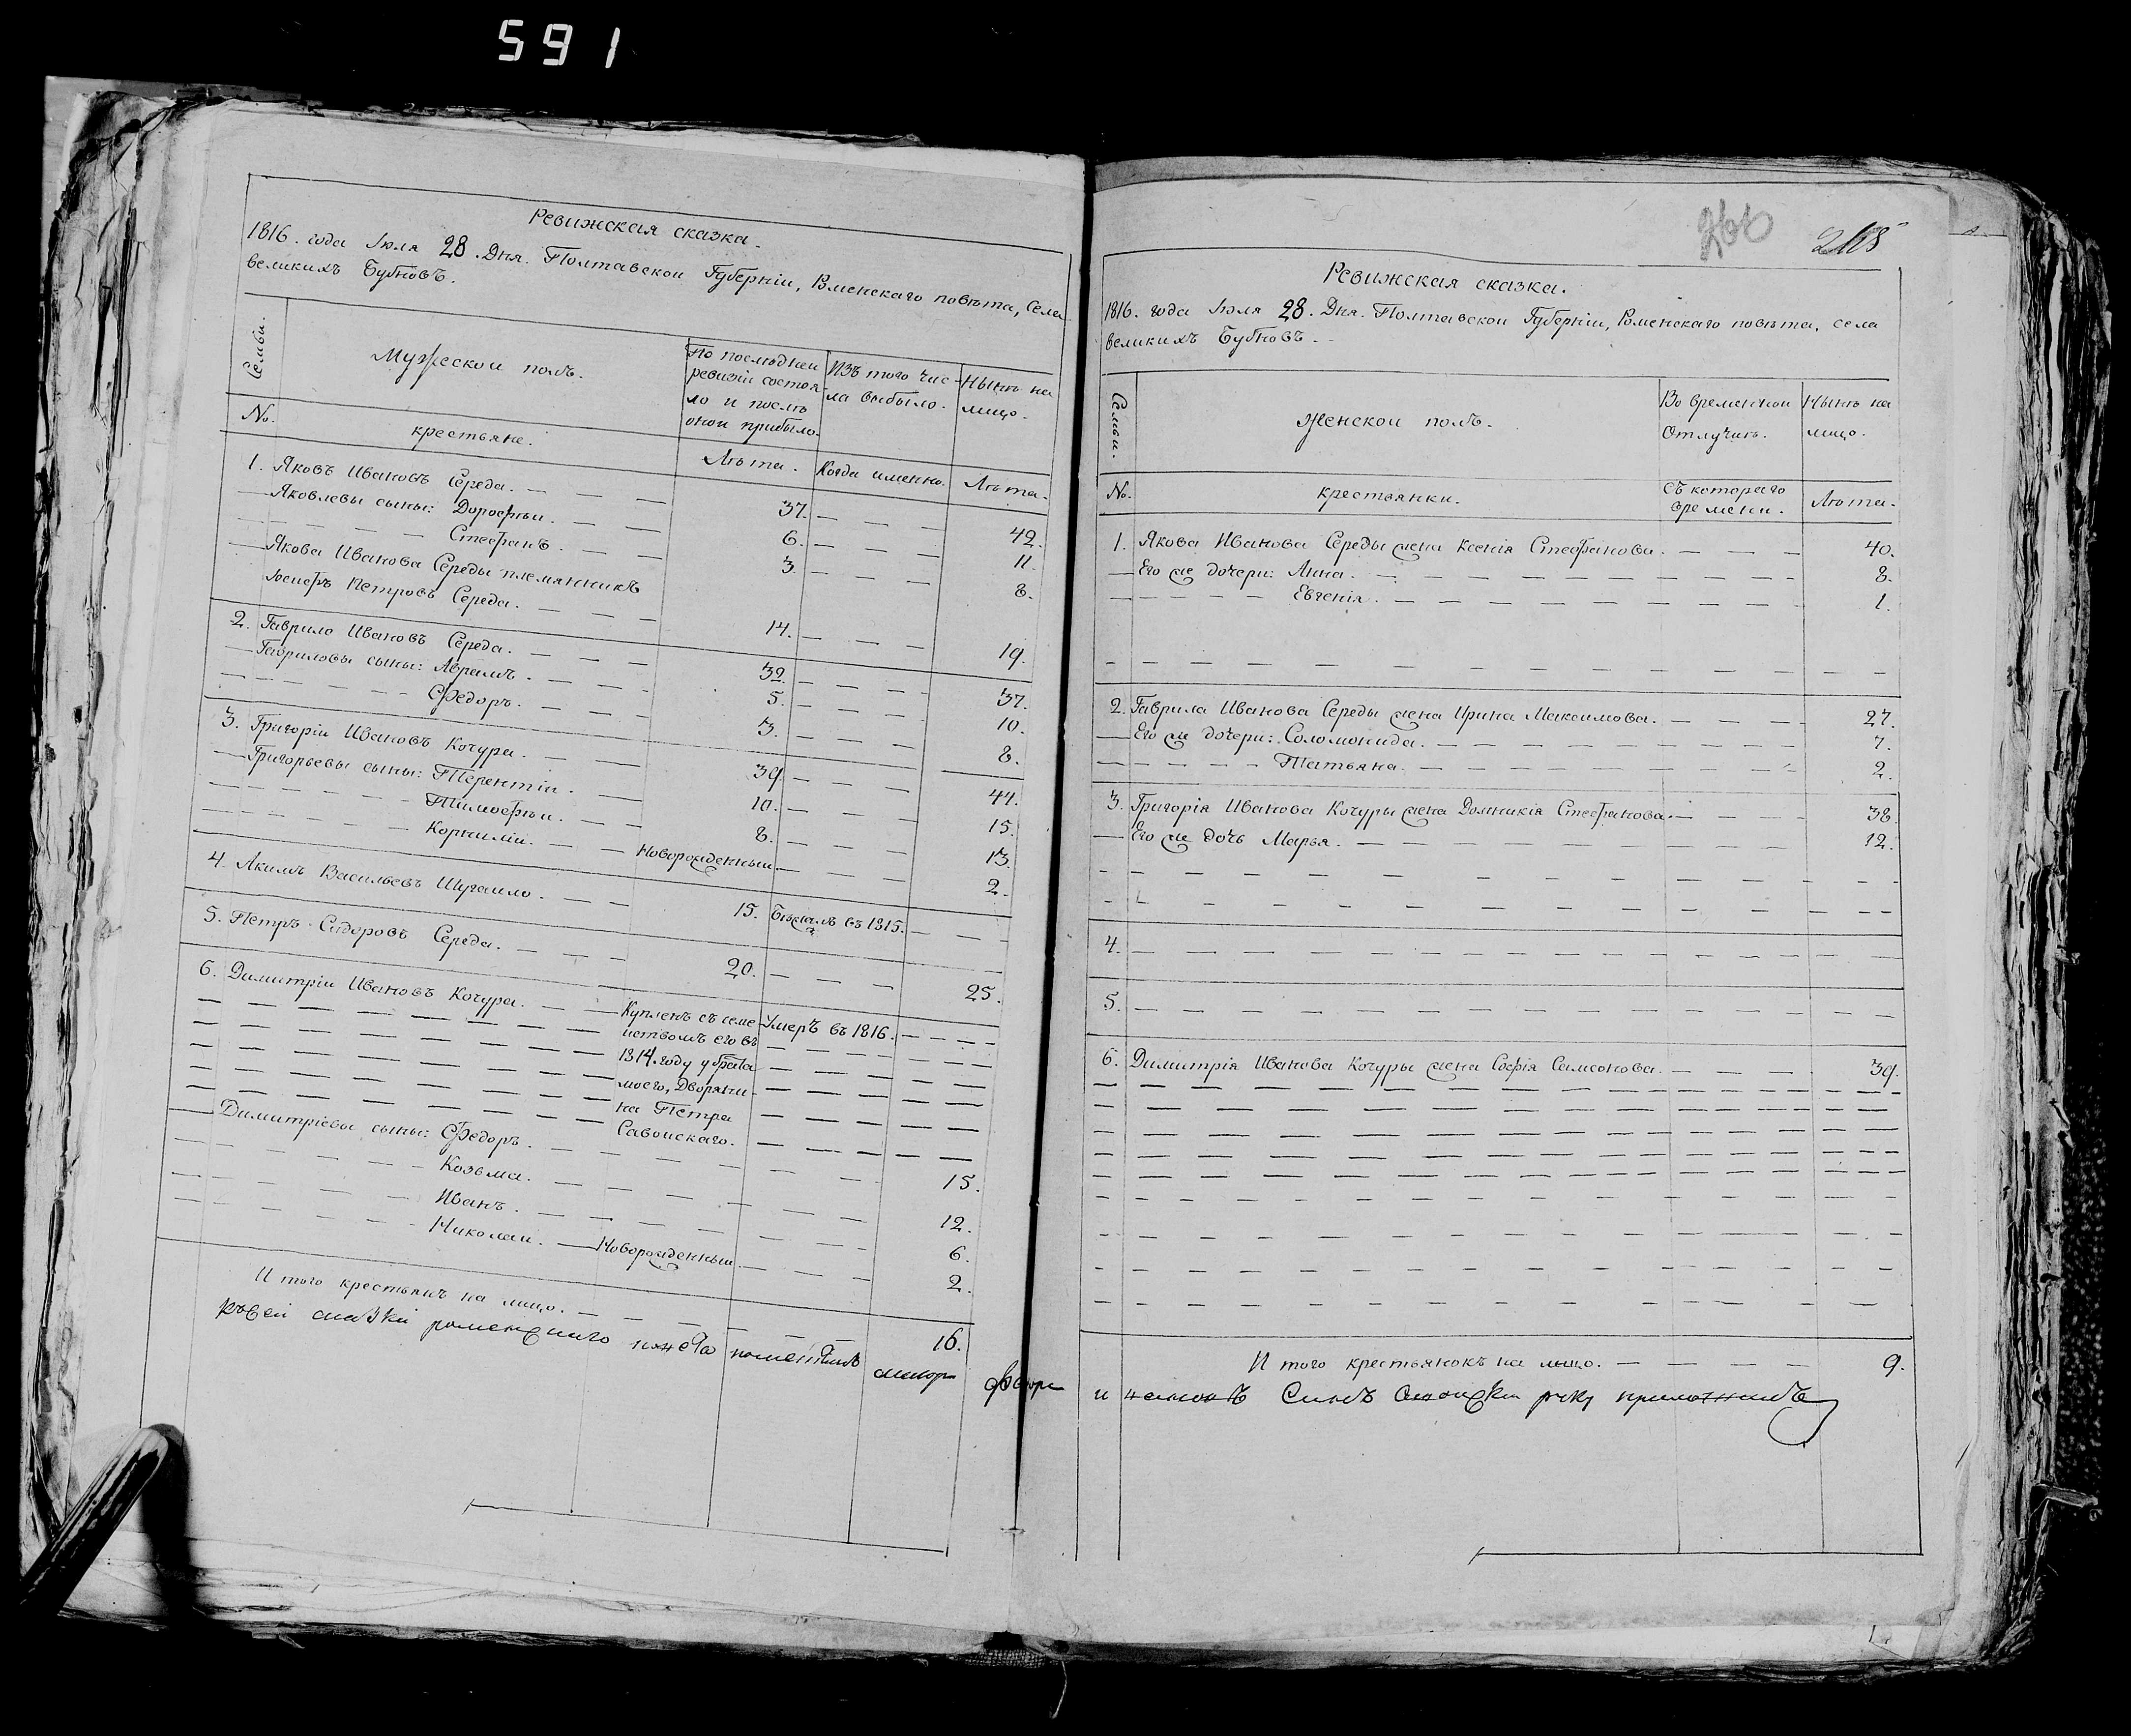 591
Ревижская сказка.
1816. года Іюля 28. Дня. Полтавской Губерніи, Роменскаго повѣта, Села
великихъ Бубновъ.
Семьи.
Мужеской полъ.
По последней ревизіи состояло и послѣ оной прибыло.
Изъ того числа выбыло.
Нынѣ на лицо.
No.
крестьяне.
Лѣта. Когда именно. Лѣта.
1. Яковъ Ивановъ Середа. 37. 42.
Яковлевы сыны: Дорофѣй. 6. 11.
Стефанъ. 3. 8.
Якова Иванова Середы племянникъ
Іосифъ Петровъ Середа. 14. 19.
2. Гаврило Ивановъ Середа. 32. 37.
Гавриловы сыны: Аврамъ. 5. 10.
Федоръ. 3. 8.
3. Григорій Ивановъ Кочура. 39. 44.
Григорьевы сыны: Терентій. 10. 15.
Тимофѣй. 8. 13.
Корнилій. Новорожденный. 2.
4. Акимъ Васильевъ Шугайло. 15. Бежалъ въ 1815.
5. Петръ Сидоровъ Середа. 20. 25.
6. Димитрій Ивановъ Кочура. Купленъ съ семе- Умеръ въ 1816.
йствомъ его въ
1814. году у брата
моего, Дворяни-
на Петра
Савойскаго.
Димитріевы сыны: Федоръ. 15.
Козьма. 12.
Иванъ. 6.
Николай. Новорожденный. 2.
И того крестьянъ на лицо. 16.
къ сей сказки роменскаго
266
Ревижская сказка.
1816. года Іюля 28. Дня. Полтавской Губерніи, Роменскаго повѣта, села
великихъ Бубновъ.
Семьи.
Женской полъ.
Во временной отлучкѣ.
Нынѣ на лицо.
No.
крестьянки.
Съ котораго времени.
Лѣта.
1. Якова Иванова Середы жена Ксенія Стефанова. 40.
Его же дочери: Анна. 8.
Евгенія. 1.
2. Гаврила Иванова Середы жена Ирина Максимова. 27.
Его же дочери: Соломонида. 7.
Татьяна. 2.
3. Григорія Иванова Кочуры жена Домникія Стефанова. 38.
Его же дочь Марья. 12.
4.
5.
6. Димитрія Иванова Кочуры жена Софія Самсонова. 39.
И того крестьянокъ на лицо. 9.
руку приложилъ